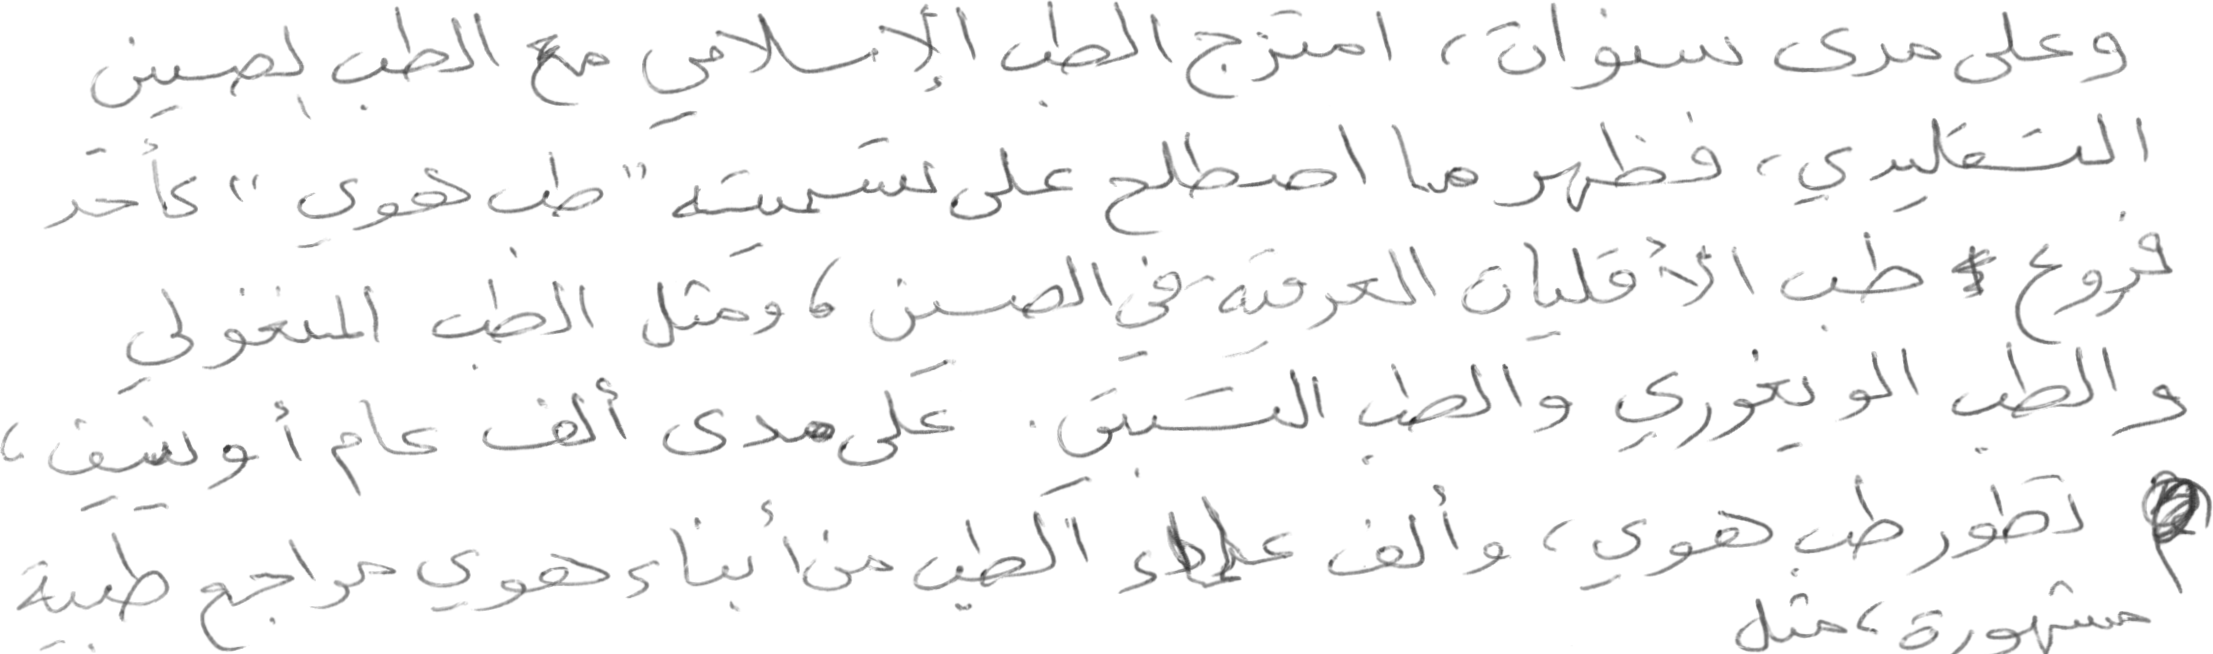 وعلى مدى سنوات، امتزج الطب الإسلامي مع الطب لصيني
التقليدي، فظهر ما اصطلح على تسميته "طب هوي" كأحد
فروع طب الأقليات العرقية في الصين، ومثل الطب المنغولي
والطب الويغوري والطب التبتي. على مدى ألف عام أو نيف،
تطور طب هوي، وألف علماء الطب من أبناء هوي مراجع طبية
مشهورة، مثل